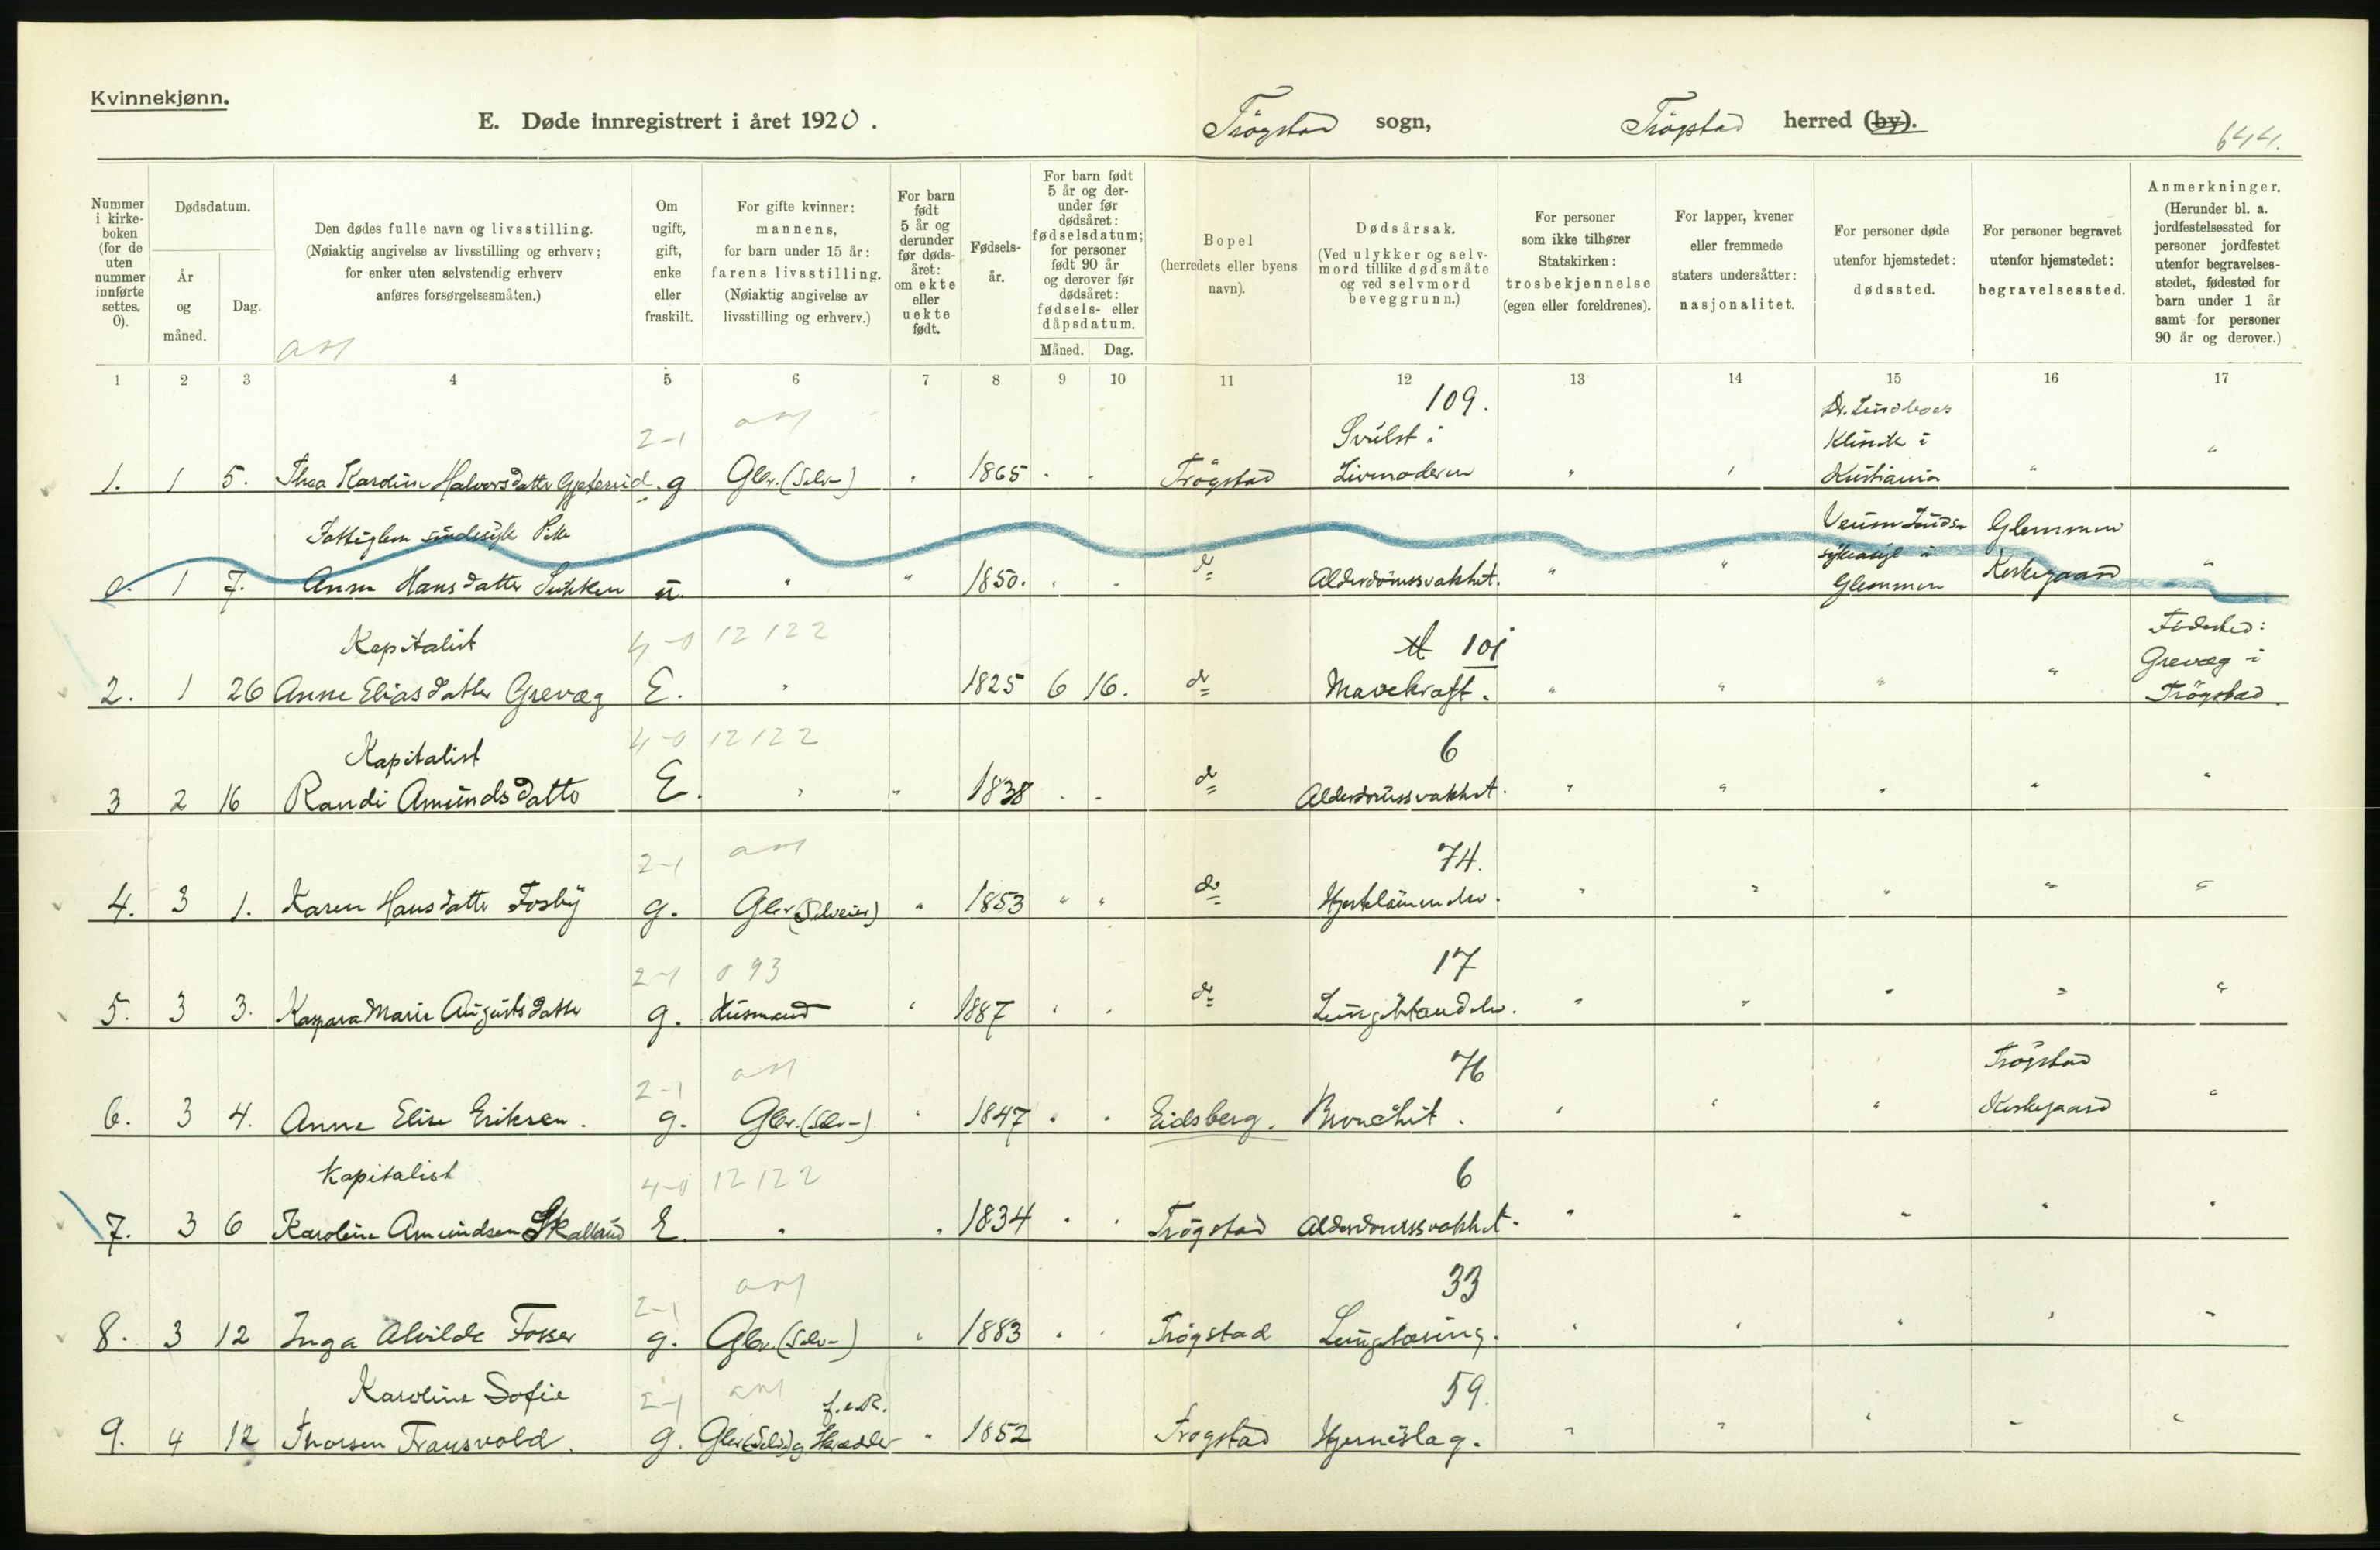 Kvinnekjønn.
E. Døde innregistrert i året 1920.
Trögstad sogn,
Trögstad herred (by).
644.
Nummer i kirkeboken (for de uten nummer innførte settes. 0).
Dødsdatum.
År og måned.
Dag.
Den dødes fulle navn og livsstilling.
(Nøiaktig angivelse av livsstilling og erhverv;
for enker uten selvstendig erhverv
anføres forsørgelsesmåten.)
Om ugift, gift, enke eller fraskilt.
For gifte kvinner:
mannens,
for barn under 15 år:
farens livsstilling.
(Nøiaktig angivelse av
livsstilling og erhverv.)
For barn født 5 år og derunder før dødsåret: om ekte eller uekte født.
Fødselsår.
For barn født 5 år og derunder før dødsåret: fødselsdatum; for personer født 90 år og derover før dødsåret: fødsels- eller dåpsdatum.
Måned.
Dag.
Bopel
(herredets eller byens
navn).
Dødsårsak.
(Ved ulykker og selvmord tillike dødsmåte og ved selvmord beveggrunn.)
For personer
som ikke tilhører
Statskirken:
trosbekjennelse
(egen eller foreldrenes).
For lapper, kvener
eller fremmede
staters undersåtter:
nasjonalitet.
For personer døde
utenfor hjemstedet:
dødssted.
For personer begravet
utenfor hjemstedet:
begravelsessted.
Anmerkninger.
(Herunder bl. a.
jordfestelsessted for
personer jordfestet
utenfor begravelsesstedet, fødested for
barn under 1 år
samt for personer
90 år og derover.)
1 2 3 4 5 6 7 8 9 10 11 12 13 14 15 16 17
109.
2-1 Svulst i Klinik i
1. 1 5. Thea Karoline Halvorsdatter g Gbr. (Selv-) " 1865 " " Trögstad Livmoderen " " Kristiania " "
Fattiglem sindssyk Pike Glemmen
0. 1 7. Anne Hansdatter u. " " 1850. " " do Alderdomssvakhet. " " Glemmen Kirkegaard "
Kapitalist 4-0 12122 101 Födested:
Grevæg i
2. 1 26 Anne Eliasdatter Grevæg E. " 1825 6 16. do Mavekræft. " " " " Trögstad.
Kapitalist 4-0 12122 6
3 2 16 Randi Amundsdatter E. " " 1838 " " do Alderdomssvakhet. " " " " "
2-1 74.
4. 3 1. Karen Hansdatter Fosby g. Gbr (Selveier) " 1853 " " do Hjertelammelse. " " " " "
2-1 093 17
5. 3 3. Kaspara Marie Augustsdatter g. Husmand " 1887 " " do " " " " "
2-1 76 Trögstad
6. 3 4. Anne Elise Eriksen. g. Gbr. (Selv-) " 1847 " " Eidsberg. Bronchit. " " " Kirkegaard "
Kapitalist 4-0 12122 6
7. 3 6 Karoline Amundsen E. " " 1834 " " Trögstad Alderdomssvakhet. " " " " "
2-1 33
8. 3 12 Inga Alvilde Fosser g. Gbr. (Selv-) " 1883 " " Trögstad Lungetæring. " " " " "
Karoline Sofie 2-1 59.
9. 4 12 Thorsen Transvold. g. Gbr (Selv) og Skrædder " 1852 Trögstad Hjerneslag. " " " " "